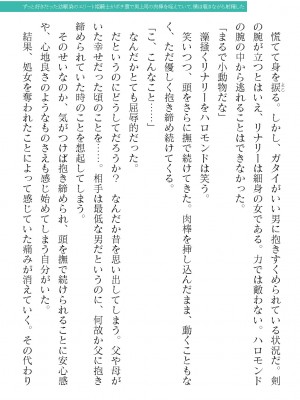 ずっと好きだった幼馴染のエリート
慌てて身を捩る。しかし、ガタイがいい男に抱きすくめられている状況だ。剣
の腕が立つとはいえ、リナリーは細身の女である。力では敵わない。ハロモンド
の腕の中から逃れることはできなかった。
「まるで小動物だな」
藻掻くリナリーをハロモンドは笑う。
笑いつつ、頭をさらに撫で続けてきた。肉棒を挿し込んだまま、動くこともな
く、ただ優しく抱き締め続けてくる。
「こ、こんなこと……」
なんだかとても屈辱的だった。
だというのにどうしてだろうか？　なんだか昔を思い出してしまう。父や母が
いた幸せだった頃のことを……。相手は最低な男だというのに、何故か父に抱き
締められていた時のことを想起してしまう。
そのせいなのか、気がつけば抱き締められ、頭を撫で続けられることに安心感
や、心地良さのようなものさえも感じ始めてしまう自分がいた。
結果、処女を奪われたことによって感じていた痛みが消えていく。その代わり